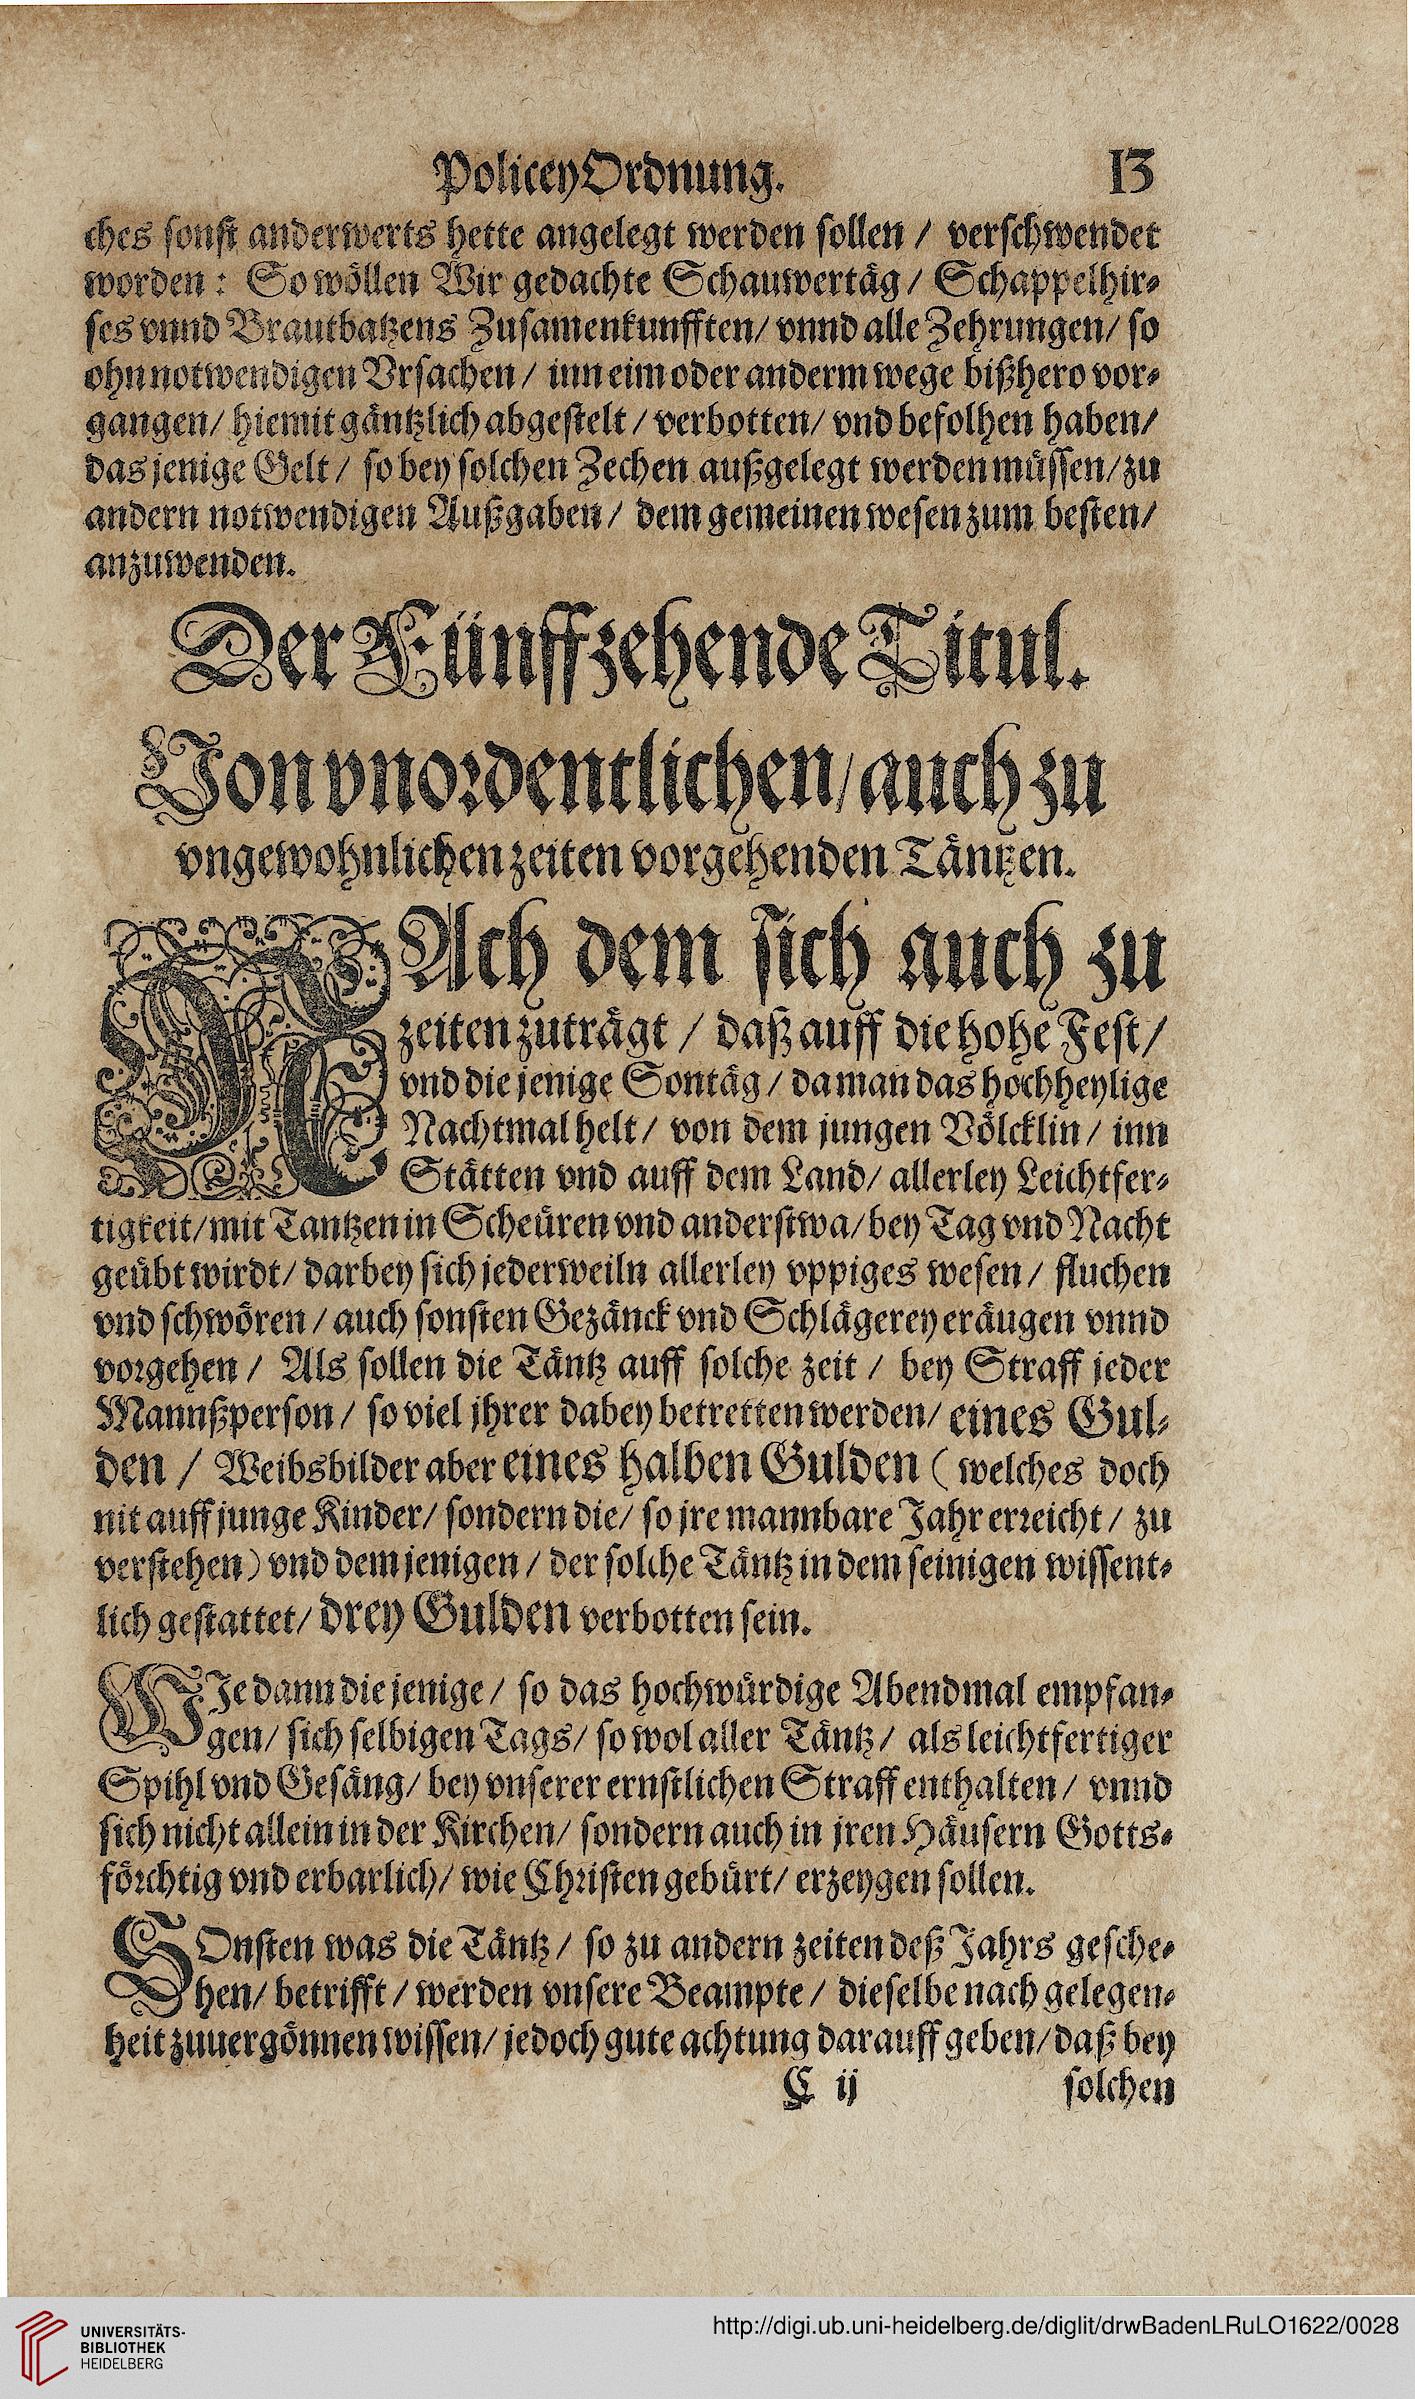 PoliceyOrdnung. 13
ches sonst anderwerts hette angelegt werden sollen / verschwendet
worden : So wöllen Wir gedachte Schauwertäg / Schappelhir-
ses vnnd Brautbatzens Zusamenkunfften / vnnd alle Zehrungen / so
ohn notwendigen Vrsachen / inn eim oder anderm wege bißhero vor-
gangen / hiemit gäntzlich abgestelt / verbotten / vnd befolhen haben /
das jenige Gelt / so bey solchen Zechen außgelegt werden müssen / zu
andern notwendigen Außgaben / dem gemeinen wesen zum besten /
anzuwenden.
Der Fünffzehende Titul.
Von vnordentlichen / auch zu
vngewohnlichen zeiten vorgehenden Täntzen.
NAch dem sich auch zu
zeiten zuträgt / daß auff die hohe Fest /
vnd die jenige Sontäg / da man das hochheylige
Nachtmal helt / von dem jungen Völcklin / inn
Stätten vnd auff dem Land / allerley Leichtfer-
tigkeit / mit Tantzen in Scheüren vnd anderstwa / bey Tag vnd Nacht
geübt wirdt / darbey sich jederweiln allerley vppiges wesen / fluchen
vnd schwören / auch sonsten Gezänck vnd Schlägerey eräugen vnnd
vorgehen / Als sollen die Täntz auff solche zeit / bey Straff jeder
Mannßperson / so viel jhrer dabey betretten werden / eines Gul-
den / Weibsbilder aber eines halben Gulden ( welches doch
nit auff junge Kinder / sondern die / so jre mannbare Jahr erreicht / zu
verstehen ) vnd dem jenigen / der solche Täntz in dem seinigen wissent-
lich gestattet / drey Gulden verbotten sein.
WJe dann die jenige / so das hochwürdige Abendmal empfan-
gen / sich selbigen Tags / so wol aller Täntz / als leichtfertiger
Spihl vnd Gesäng / bey vnserer ernstlichen Straff enthalten / vnnd
sich nicht allein in der Kirchen / sondern auch in jren Häusern Gotts-
förchtig vnd erbarlich / wie Christen gebürt / erzeygen sollen.
SOnsten was die Täntz / so zu andern zeiten deß Jahrs gesche-
hen / betrifft / werden vnsere Beampte / dieselbe nach gelegen-
heit zuuergönnen wissen / jedoch gute achtung darauff geben / daß bey
C ij solchen
UNIVERSITÄTS-
BIBLIOTHEK
HEIDELBERG
http://digi.ub.uni-heidelberg.de/diglit/drwBadenLRuLO1622/0028